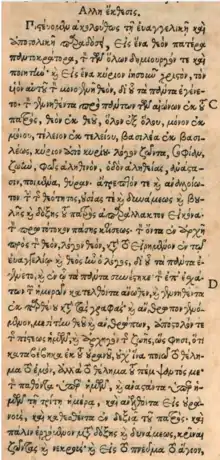 Ἄλλη ἔκθεσις.
Πιστεύομεν ἀκολούθως τῇ εὐαγγελικῇ καὶ
ἀποστολικῇ παραδόσει, εἰς ἕνα θεὸν πατέρα
παντοκράτορα, τὸν τῶν ὅλων δημιουργόν τε καὶ
ποιητήν· καὶ εἰς ἕνα κύριον ἰησοῦν χριστὸν, τὸν
υἱὸν αὐτοῦ τὸν μονογενῆ θεὸν, δι' οὗ τὰ πάντα ἐγένε-
το· τὸν γεννηθέντα πρὸ πάντων τῶν αἰώνων ἐκ τοῦ C
πατρὸς, θεὸν ἐκ θεοῦ, ὅλον ἐξ ὅλου, μόνον ἐκ
μόνου, τέλειον ἐκ τελείου, βασιλέα ἐκ βασι-
λέως, κύριον ἀπὸ κυρίου· λόγον ζῶντα, σοφίαν,
ζωὴν, φῶς ἀληθινὸν, ὁδὸν ἀληθείας, ἀνάστα-
σιν, ποιμένα, θύραν· ἄτρεπτόν τε καὶ ἀναλλοίω-
τον· τῆς θεότητος, οὐσίας τε καὶ δυνάμεως καὶ βου-
λῆς καὶ δόξης τοῦ πατρὸς ἀπαράλλακτον εἰκόνα·
τὸν πρωτότοκον πάσης κτίσεως· τὸν ὄντα ἐν ἀρχῇ
πρὸς τὸν θεὸν, λόγον θεὸν, κατὰ τὸ εἰρημένον ἐν τῷ
εὐαγγελίῳ· καὶ θεὸς ἦν ὁ λόγος, δι' οὗ τὰ πάντα ἐ-
γένετο, καὶ ἐν ᾧ τὰ πάντα συνέστηκε· τὸν ἐπ' ἐσχά- D
των τῶν ἡμερῶν κατελθόντα ἄνωθεν, καὶ γεννηθέντα
ἐκ παρθένου κατὰ τὰς γραφὰς· καὶ ἄνθρωπον γενό-
μενον, μεσίτην θεοῦ καὶ ἀνθρώπων, ἀπόστολόν τε
τῆς πίστεως ἡμῶν, καὶ ἀρχηγὸν τῆς ζωῆς, ὥς φησιν, ὅτι
καταβέβηκα ἐκ τοῦ οὐρανοῦ, οὐχ ἵνα ποιῶ τὸ θέλη-
μα τὸ ἐμὸν, ἀλλὰ τὸ θέλημα τοῦ πέμψαντός με·
τὸν παθόντα ὑπὲρ ἡμῶν, καὶ ἀναστάντα ὑπὲρ ἡμῶν
τῇ τρίτῃ ἡμέρᾳ, καὶ ἀνελθόντα εἰς οὐρα-
νοὺς, καὶ καθεσθέντα ἐν δεξιᾷ τοῦ πατρὸς, καὶ
πάλιν ἐρχόμενον μετὰ δόξης καὶ δυνάμεως, κρῖναι
ζῶντας καὶ νεκρούς· καὶ εἰς τὸ πνεῦμα τὸ ἅγιον,